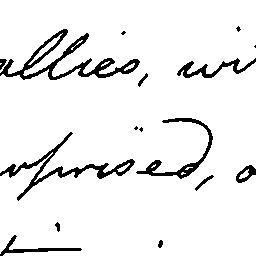 allies, wi
urprised, a